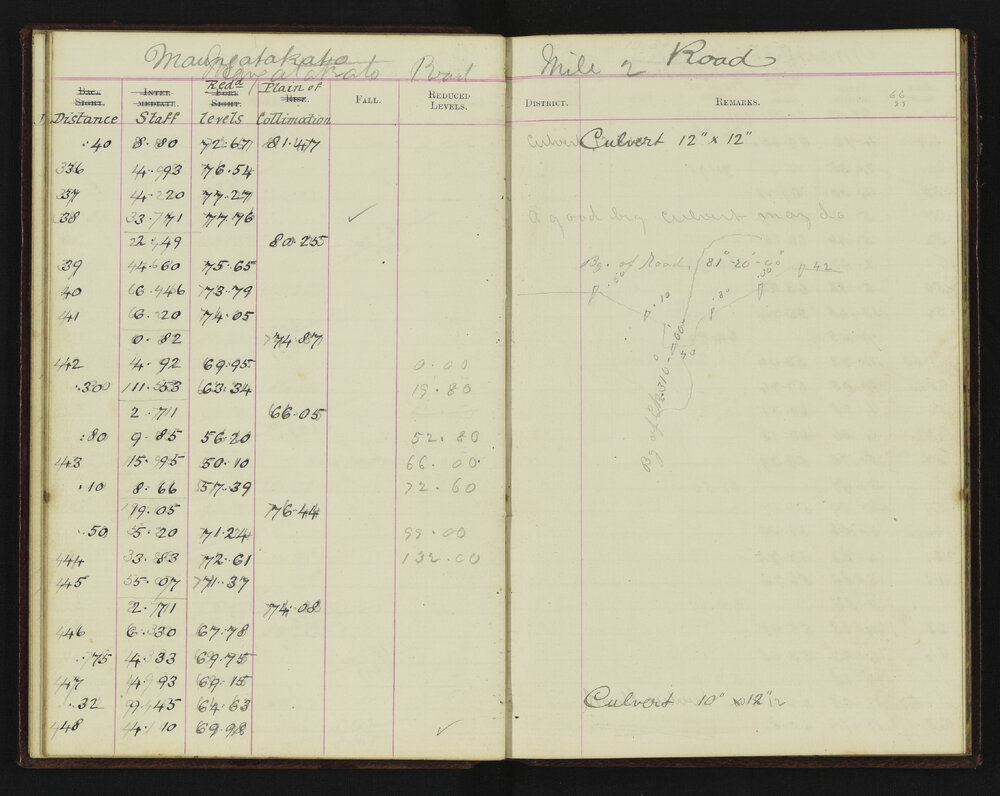 Maungatakato Road Mile 2 Road
Maungatakato
Back Sight. Inter mediate. Fore Sight. Rise. Fall. Reduced Levels. District. Remarks. 66
Distance Staff Redd levels Plain of Collimation
.40 8.80 72.67 81.47 Culvert Culvert 12" x 12"
36 4.93 76.54
37 4.20 77.27
38 3.71 77.76 ✓ A good big culvert may do
2.49 80.25
39 4.60 75.65 Bg. of Road 81°-20'-00" 42
40 6.46 73.79
41 6.20 74.05
0.82 74.87
42 4.92 69.95 0.00
.30 11.53 63.34 19.80
2.71 66.05
.80 9.85 56.20 52.80
43 15.95 50.10 66.00 Bg of
.10 8.66 57.39 72.60
19.05 76.44
.50 5.20 71.24 99.00
44 3.83 72.61 132.00
45 5.07 71.37
2.71 74.08
46 6.30 67.78
.75 4.33 69.75
47 4.93 69.15
.32 9.45 64.63 Culvert 10" x 12"
48 4.10 69.98 ✓